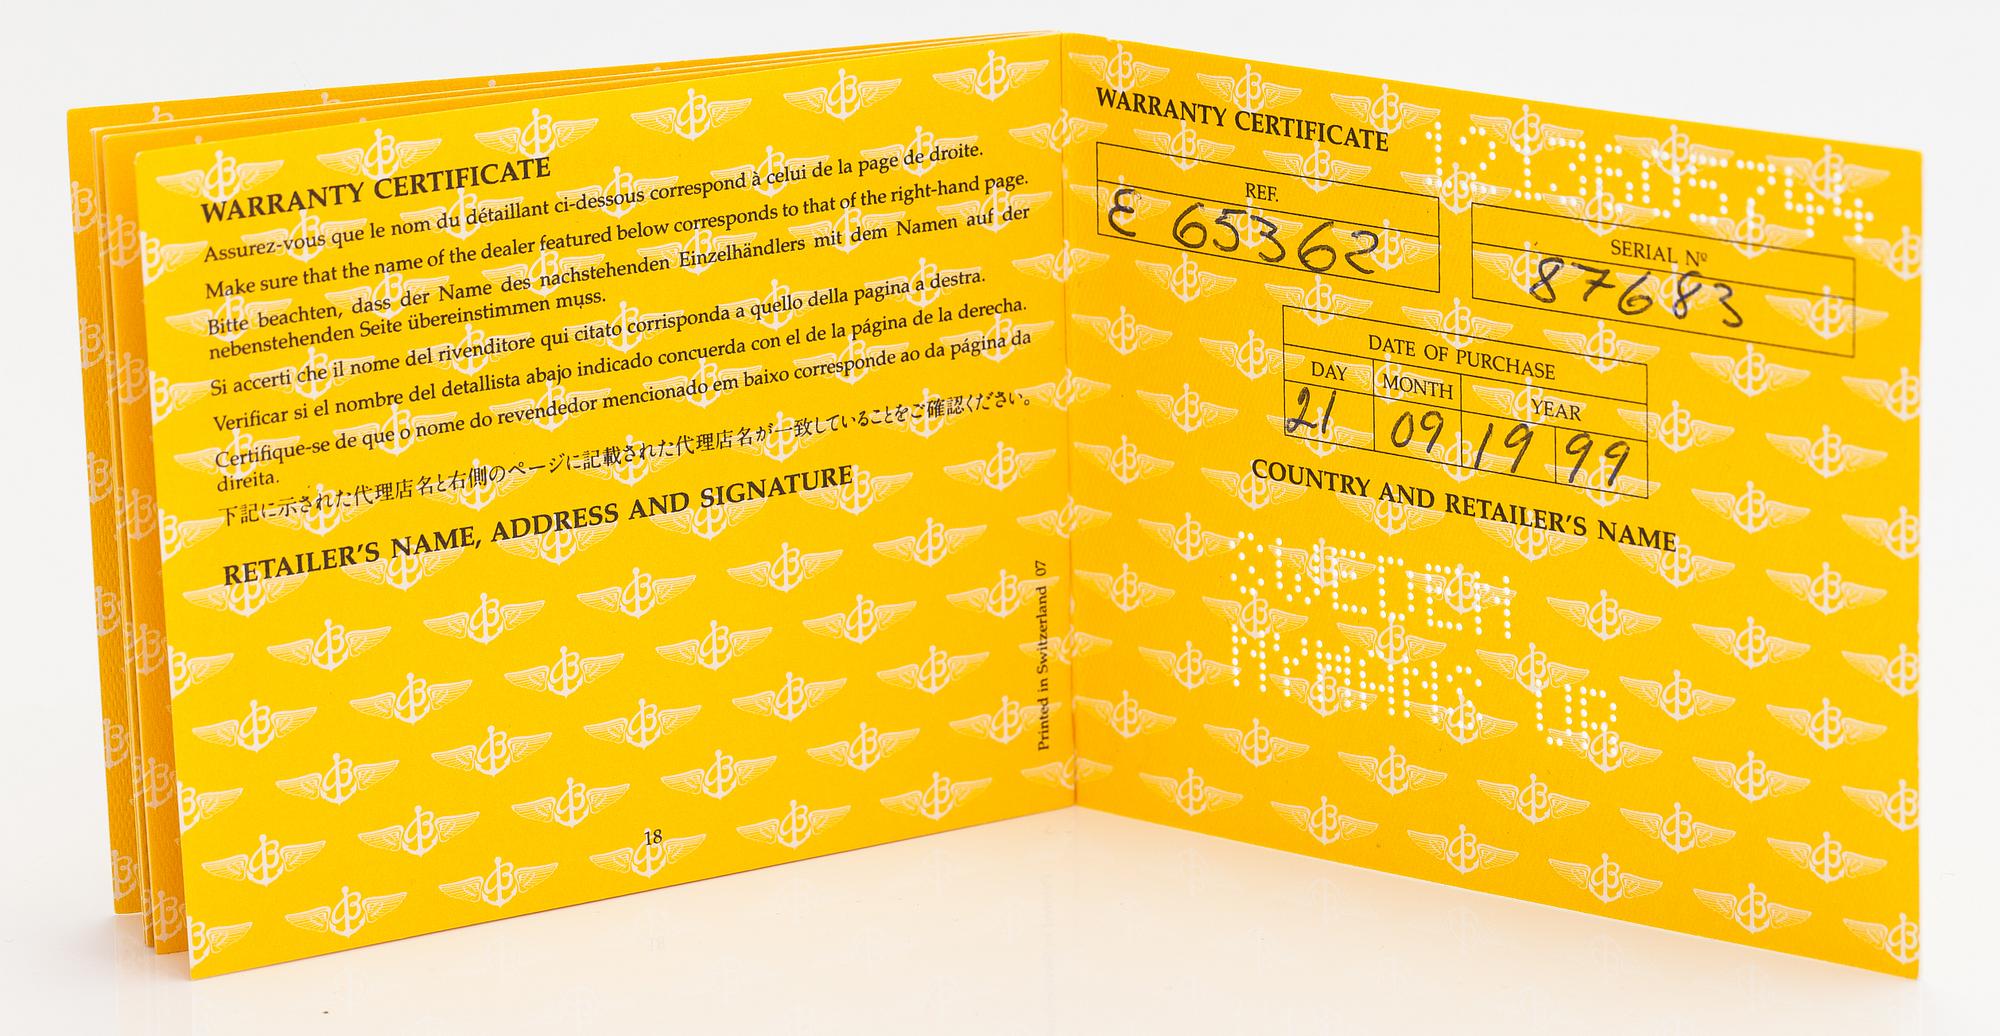 WARRANTY CERTIFICATE
Assurez-vous que le nom du détaillant ci-dessous correspond à celui de la page de droite.
Make sure that the name of the dealer featured below corresponds to that of the right-hand page.
Bitte beachten, dass der Name des nachstehenden Einzelhändlers mit dem Namen auf der
nebenstehenden Seite übereinstimmen muss.
Si accerti che il nome del rivenditore qui citato corrisponda a quello della pagina a destra.
Verificar si el nombre del detallista abajo indicado concuerda con el de la página de la derecha.
Certifique-se de que o nome do revendedor mencionado em baixo corresponde ao da página da
direita.
下記に示された代理店名と右側のページに記載された代理店名が一致していることをご確認ください。
RETAILER'S NAME, ADDRESS AND SIGNATURE
Printed in Switzerland 07
18
WARRANTY CERTIFICATE
REF.
E 65362
SERIAL Nº
87683
DATE OF PURCHASE
DAY MONTH YEAR
21 09 19 99
COUNTRY AND RETAILER'S NAME
SWEDEN
NYMANS UR